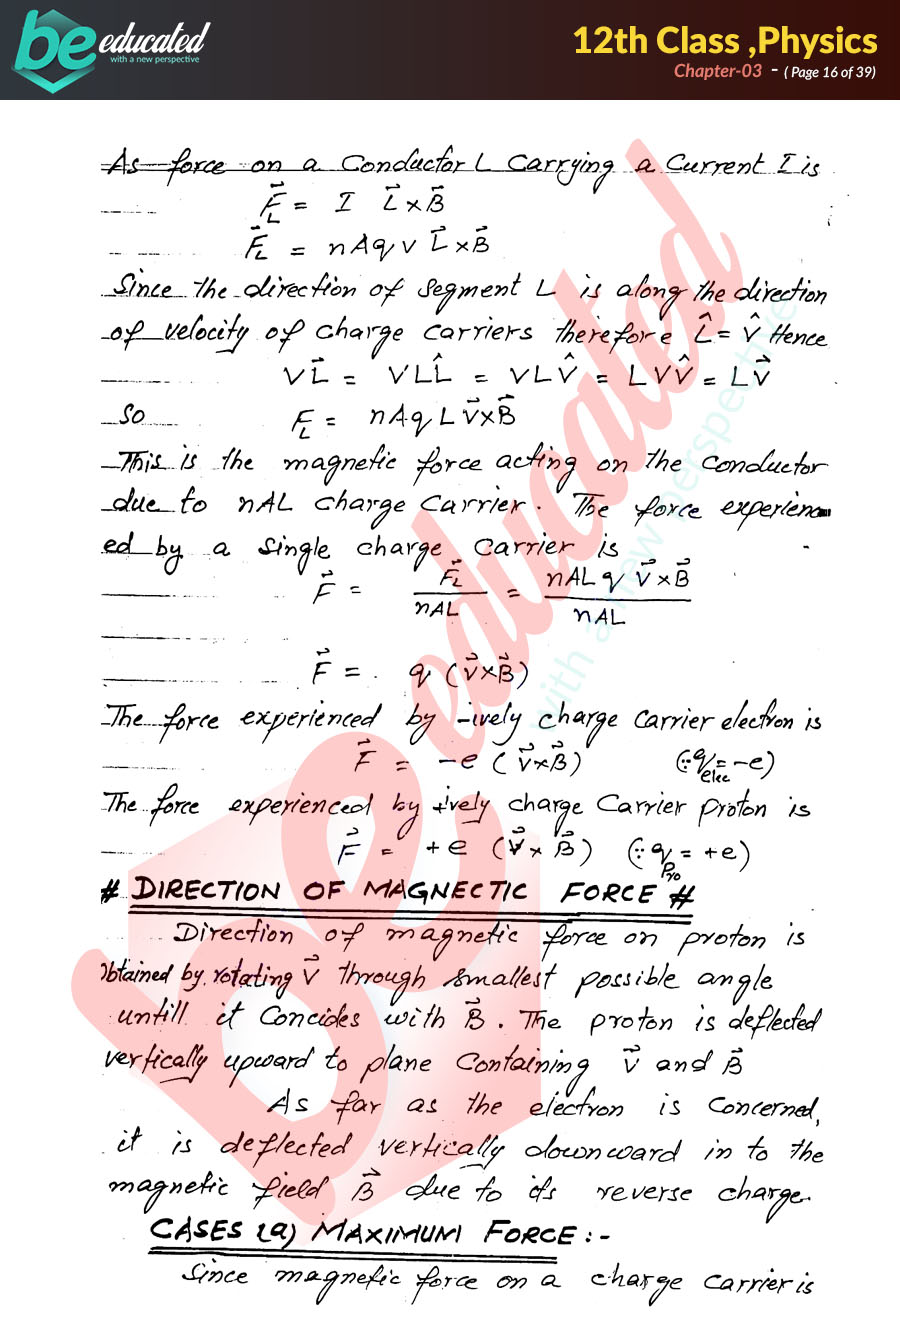 be educated
with a new perspective
12th Class ,Physics
Chapter-03 - ( Page 16 of 39)
As force on a Conductor L Carrying a Current I is
F⃗_L = I L⃗×B⃗
F⃗_L = nAqv L⃗×B⃗
Since the direction of segment L is along the direction
of velocity of charge carriers therefore L̂ = v̂ Hence
VL⃗ = VLL̂ = VLV̂ = LVV̂ = LV⃗
So F_L = nAqLV⃗×B⃗
This is the magnetic force acting on the conductor
due to nAL charge Carrier. The force experienc
ed by a single charge carrier is
F⃗ = F⃗_L/nAL = nALq V⃗×B⃗/nAL
F⃗ = q (V⃗×B⃗)
The force experienced by -ively charge carrier electron is
F⃗ = -e (V⃗×B⃗) (∵q_elec = -e)
The force experienced by +ively charge Carrier proton is
F⃗ = +e (V⃗×B⃗) (∵q_pro = +e)
# DIRECTION OF MAGNECTIC FORCE #
Direction of magnetic force on proton is
obtained by rotating V⃗ through smallest possible angle
untill it Concides with B⃗. The proton is deflected
vertically upward to plane Containing V⃗ and B⃗
As far as the electron is Concerned,
it is deflected vertically downward in to the
magnetic field B⃗ due to its reverse charge.
CASES (a) MAXIMUM FORCE:-
Since magnetic force on a charge carrier is
be educated
with a new perspective